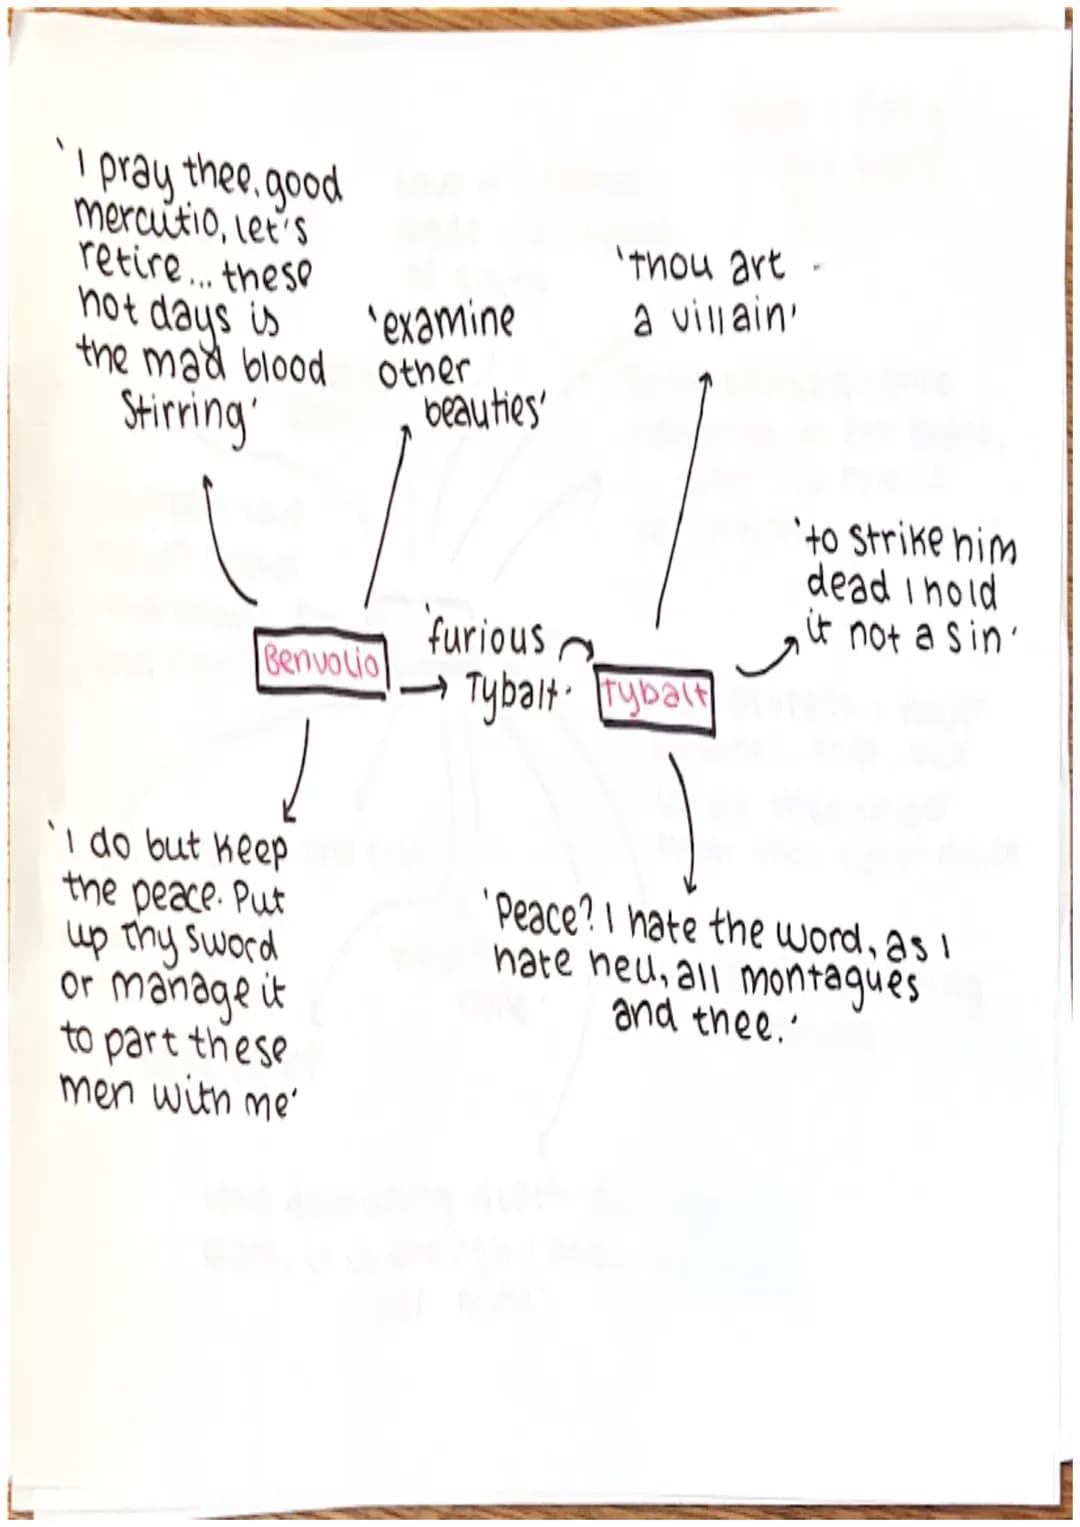 'I pray thee, good
mercutio, let's
retire... these
hot days is
the mad blood
Stirring'
'examine
other
beauties'
'Thou art
a villain'
'to strike him
dead I hold
it not a sin'
Benvolio
'furious
Tybalt'
Tybalt
'I do but keep
the peace. Put
up thy sword
or manage it
to part these
men with me'
'Peace? I hate the word, as I
hate hell, all montagues
and thee.'